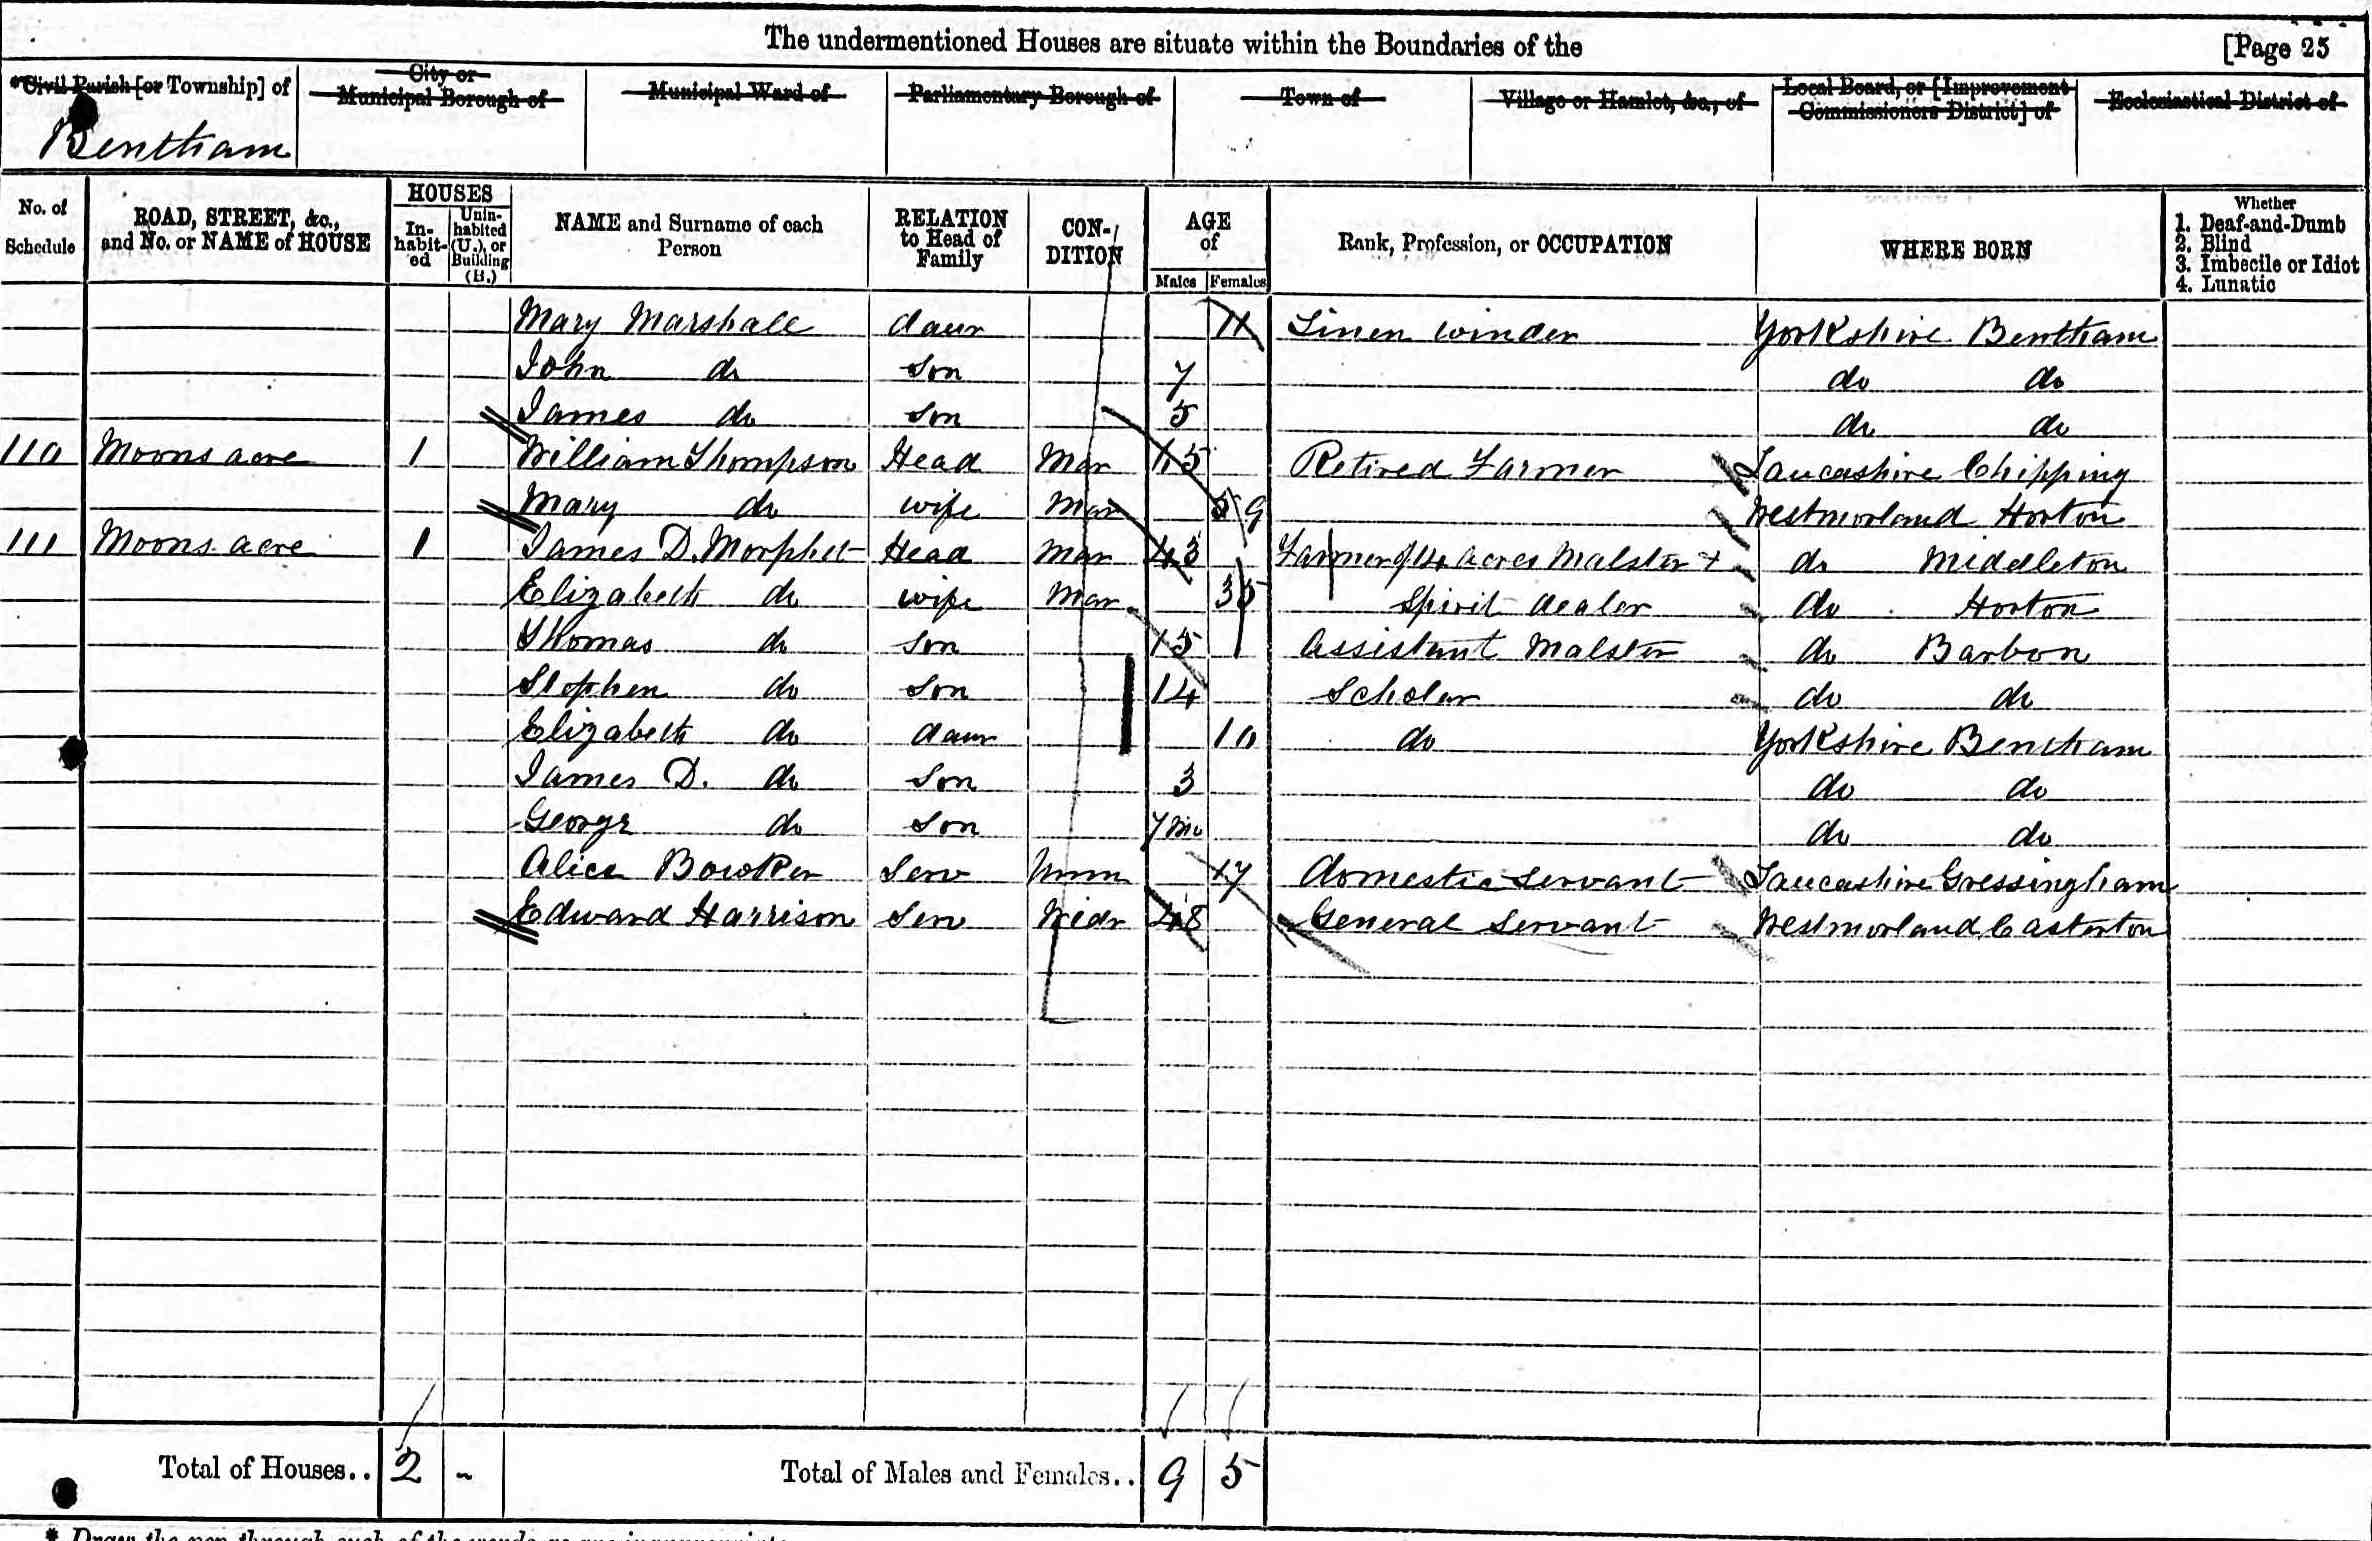 The undermentioned Houses are situate within the Boundaries of the [Page 25
*Civil Parish [or Township] of City or Municipal Borough of Municipal Ward of Parliamentary Borough of Town of Village or Hamlet, &c., of Local Board, or [Improvement Commissioners District] of Ecclesiastical District of
Bentham
No. of Schedule ROAD, STREET, &c., and No. or NAME of HOUSE HOUSES In-habit-ed Unin-habited (U.), or Building (B.) NAME and Surname of each Person RELATION to Head of Family CON-DITION AGE of Males Females Rank, Profession, or OCCUPATION WHERE BORN Whether 1. Deaf-and-Dumb 2. Blind 3. Imbecile or Idiot 4. Lunatic
Mary Marshall daur 11 Linen winder Yorkshire Bentham
John do son 7 do do
James do son 5 do do
110 Moons acre 1 William Thompson Head Mar 45 Retired Farmer Lancashire Chipping
Mary do wife Mar 59 Westmorland Hooton
111 Moons acre 1 James D. Morphet Head Mar 43 Farmer of 14 acres Malster + do Middleton
Elizabeth do wife Mar 35 Spirit dealer do Hooton
Thomas do son 15 Assistant Malster do Barbon
Stephen do son 14 Scholar do do
Elizabeth do daur 10 do Yorkshire Bentham
James D. do son 3 do do
George do son 7 mo do do
Alice Bowker Serv Unm 17 domestic servant Lancashire Gressingham
Edward Harrison Serv Widr 48 General Servant Westmorland Casterton
Total of Houses.. 2 - Total of Males and Females.. 9 5